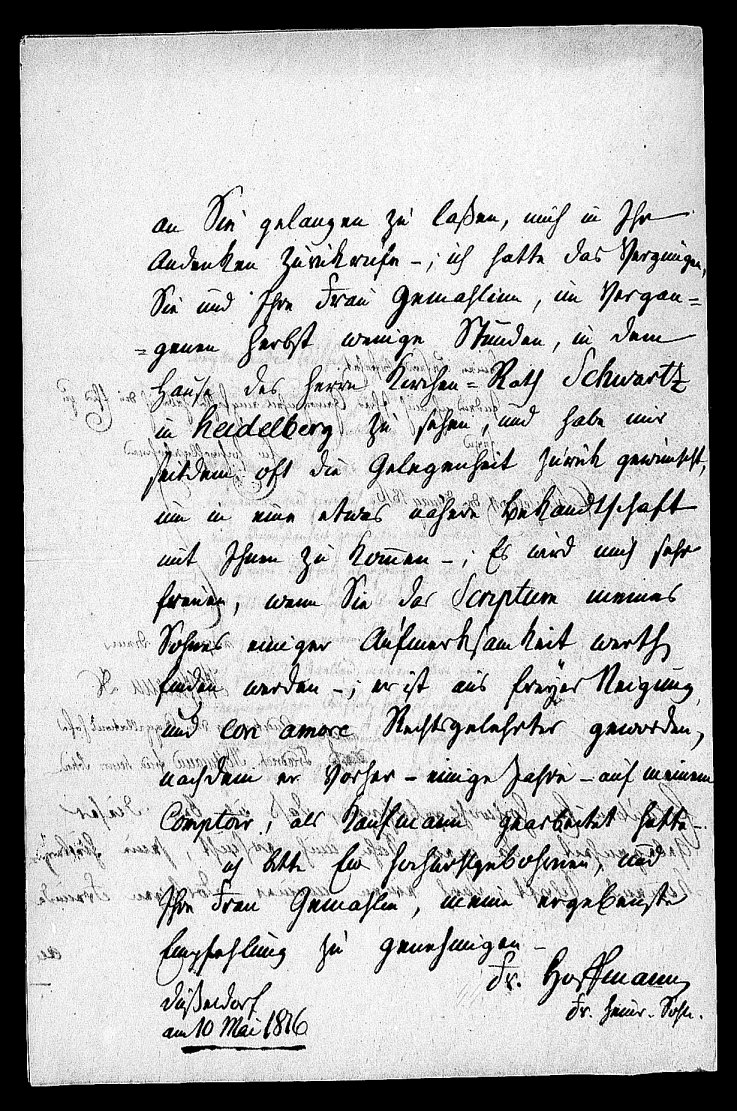 an Sie gelangen zu laßen, mich in Ihr
Andenken zurükrufe -; ich hatte das Vergnügen,
Sie und Ihre Frau Gemahlinn, im Vergan=
=genen Herbst wenige Stunden, in dem
Hause des Herrn Kirchen=Rath Schwartz
in Heidelberg zu sehen, und habe mir
seitdem oft die Gelegenheit zurük gewünscht,
um in eine etwas nähere Bekandtschaft
mit Ihnen zu kom̄en -; Es wird mich sehr
freuen, wenn Sie das Scriptum meines
Sohnes einiger Aufmerksamkeit werth
finden werden -; er ist aus freyer Neigung,
und con amore Rechtsgelehrter geworden,
nachdem er vorher - einige Jahre - auf meinem
Comptoir, als Kaufmann gearbeitet hatte -
ich bitte Ew Hochwohlgebohrnen, und
Ihre Frau Gemahlin, meine ergebenste
Empfehlung zu genehmigen -
Fr. Hoffmann
Fr. Heinr. Sohn.
Düßeldorf
am 10 Mai 1816